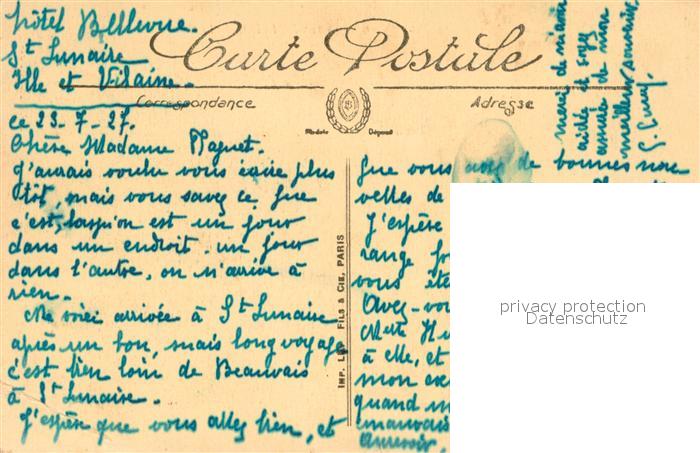 Hôtel Bellevue.
St Lunaire.
Ille et Vilaine.
Carte Postale
Correspondance
Adresse
Modèle Déposé
ce 23-7-27.
Chère Madame
J'aurais voulu vous écrire plus
tôt, mais vous savez ce que
c'est, lorsqu'on est un jour
dans un endroit, un jour
dans l'autre, on n'arrive à
rien.
Me voici arrivée à St Lunaire
après un bon, mais long voyage
c'est bien loin de Beauvais
à St Lunaire.
J'espère que vous allez bien, et
IMP. FILS & CIE, PARIS
que vous avez de bonnes nou
velles de
J'espère
range
vous ête
Avez-vou
à elle, et
mon
quand
mauvais
Aurevoir,
amitié et soyez
assurée de mon
meilleur souvenir
privacy protection
Datenschutz